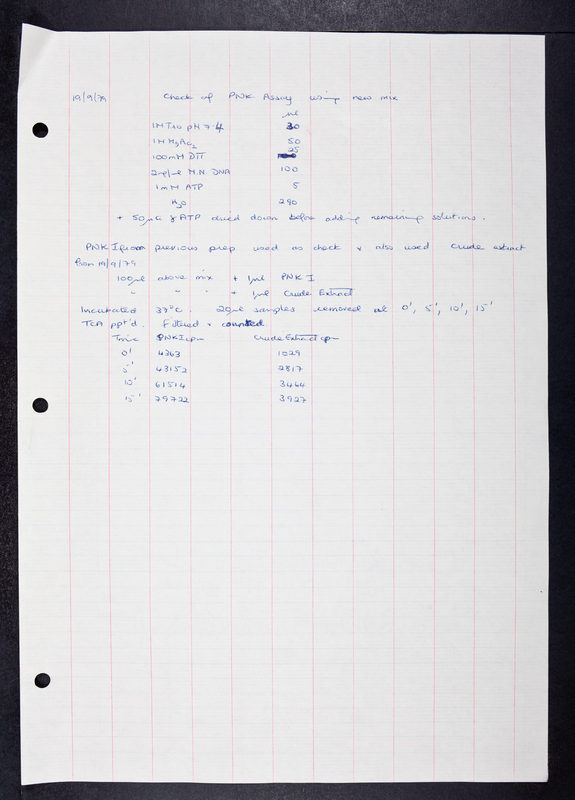 19/9/79 Check of PNK Assay using new mix
µl
1M Tris pH 7.4 30
1M MgAc2 50
100mM DTT 25
2mg/ml M.N. DNA 100
1mM ATP 5
H2O 290
+ 50µCi γATP dried down before adding remaining solutions.
PNK I from previous prep used as check & also used crude extract
from 19/9/79
100µl above mix + 1µl PNK I
" " " + 1µl Crude Extract
Incubated 37°C. 20µl samples removed at 0', 5', 10', 15'
TCA ppt'd. Filtered & counted
Time PNKI cpm Crude Extract cpm
0' 4363 1029
5' 43152 2817
10' 61514 3464
15' 79722 3927